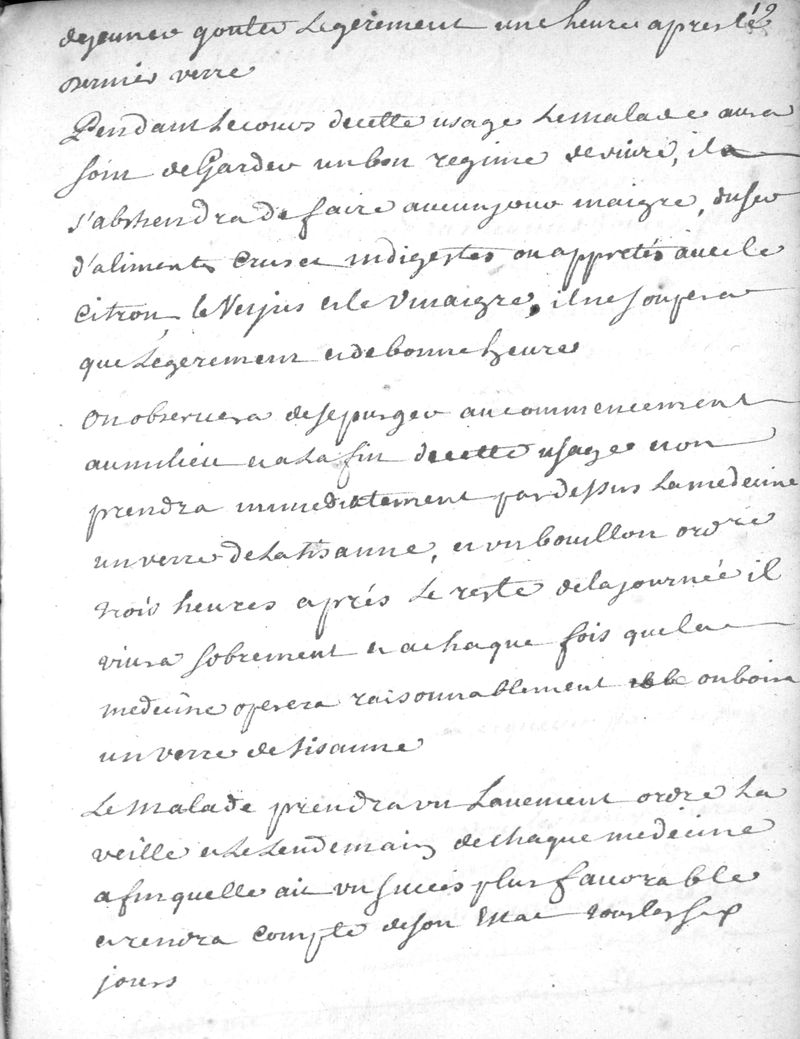 dejeuner gouter Legerement une heure apres le 9
dernier verre
Pendant Lecours decette usage Lemalade aura
soin deGarder unbon regime devivre, il
s'abstiendra de faire aucun jour maigre, duser
d'aliments Crus et indigestes ou appretés avec le
Citron, le Verjus et le Vinaigre, il ne soupera
que Legerement et debonne heure
on observera desepurger au commencement
aumilieu et a La fin decette usage et on
prendra immediatement pardessus La medecine
un verre de La tisanne, et un bouillon ordre
trois heures aprés Le reste de la journée il
vivra sobrement et achaque fois que la
medecine operera raisonnablement on boira
un verre de tisanne
Le Malade prendra un Lavement ordre La
veille et Le Lendemain de chaque medecine
afin quelle ait un succés plus favorable
et rendra compte de son Etat tous les six
jours